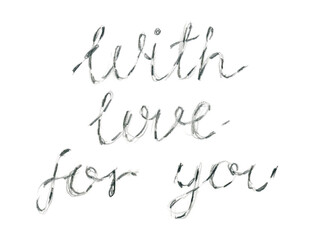 with
love
for you